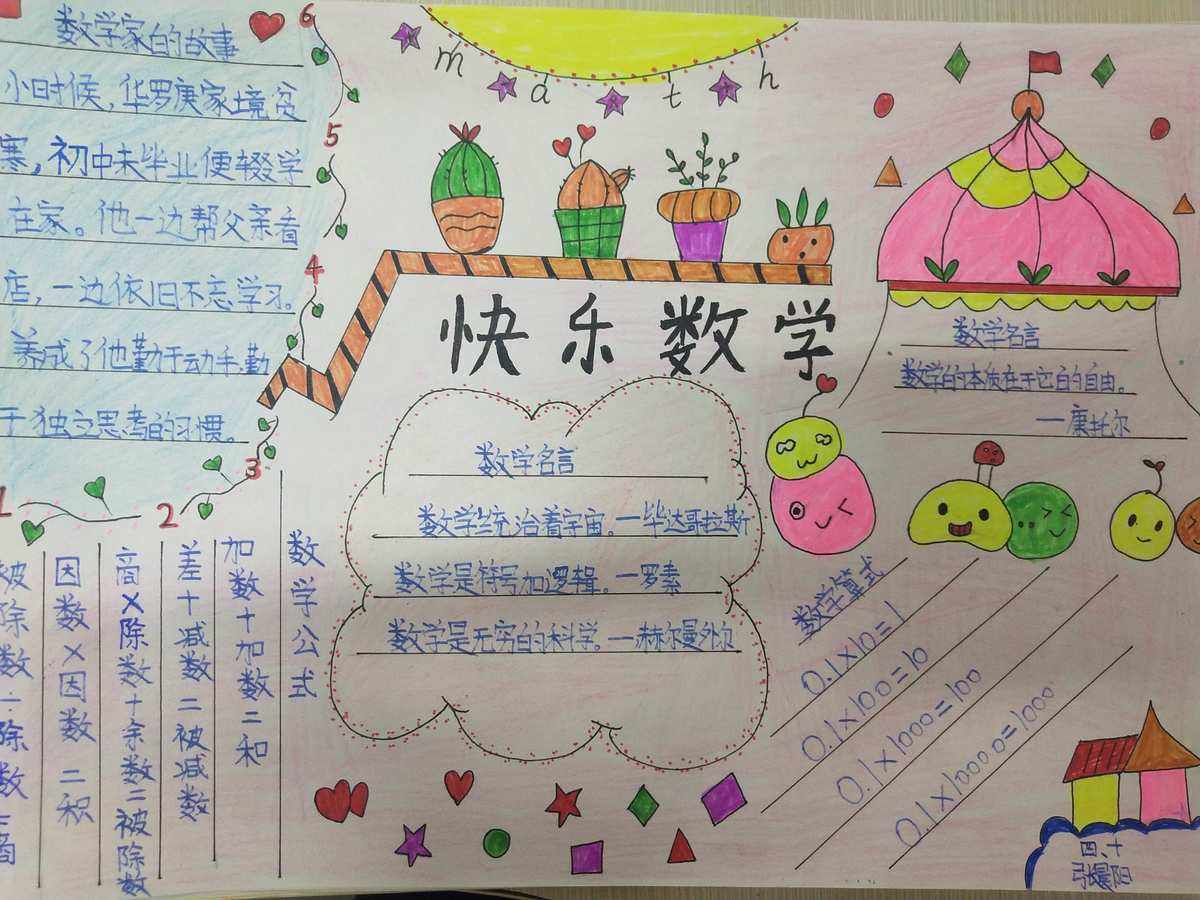 数学家的故事
小时候，华罗庚家境贫
寒，初中未毕业便辍学
在家。他一边帮父亲看
店，一边依旧不忘学习。
养成了他勤于动手，勤
于独立思考的习惯。
6
5
4
3
2
1
math
快乐数学
数学名言
数学的本质在于它的自由。
—康托尔
数学名言
数学统治着宇宙。—毕达哥拉斯
数学是符号加逻辑。—罗素
数学是无穷的科学。—赫尔曼外尔
数学公式
加数+加数=和
差+减数=被减数
商×除数+余数=被除数
因数×因数=积
被除数÷除数=商
数学算式
0.1×10=1
0.1×100=10
0.1×1000=100
0.1×10000=1000
四、十
张晨阳